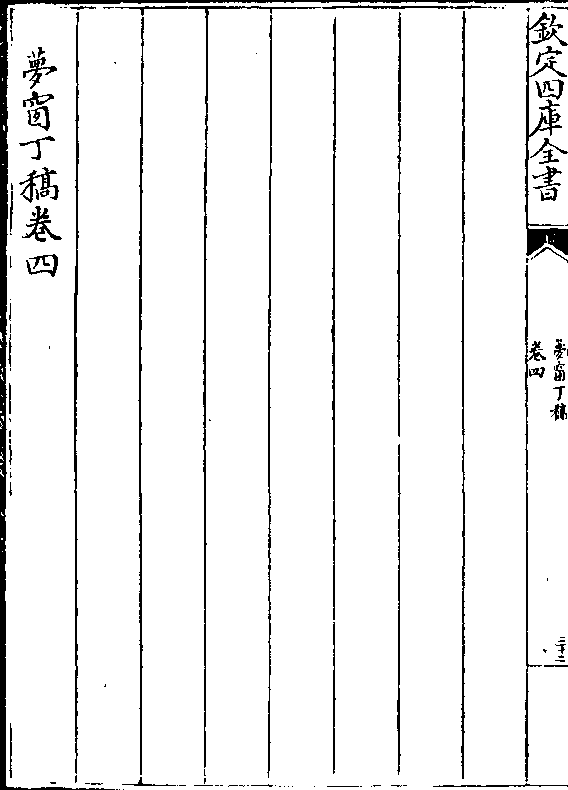 欽定四庫全書
夢窗丁稿
卷四
三十二
夢窗丁稿卷四